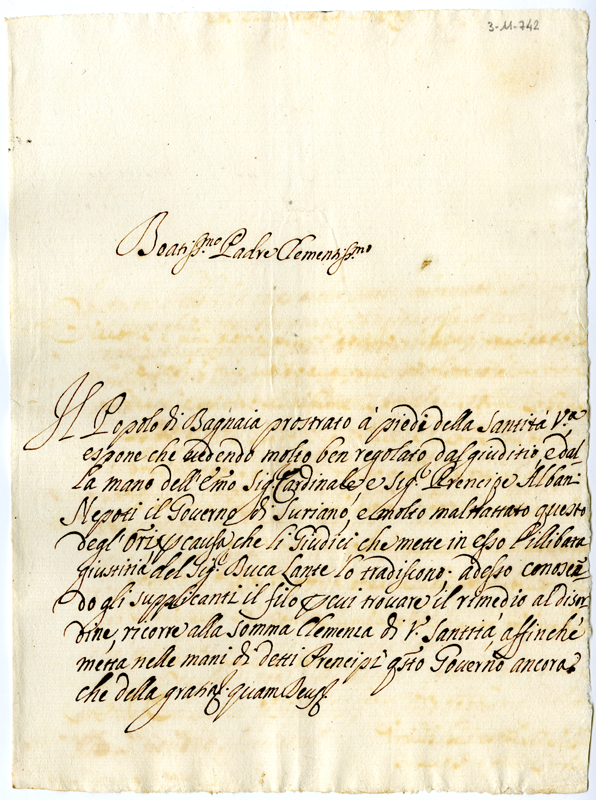 3-11-742
Beatiss.mo Padre Clementiss.mo
Il Popolo di Bagnaia prostrato à piedi della Santità V.ra
espone che vedendo molto ben regolato dal giuditio, e dal
la mano dell'Emo Sig.r Cardinale e Sig.r Prencipe Albani
Nepoti il Governo di Suriano, e molto maltrattato questo
degl' causa che li Giudici che mette in esso l'illibata
giustitia del Sig.r Duca Lante lo tradiscono; adesso conoscen
do gli supplicanti il filo p cui trovare il rimedio al disor
dine, ricorre alla somma Clemenza di V.a Santità, affinché
metta nelle mani di detti Prencipi q.sto Governo ancora
che della gratia. quam Deus